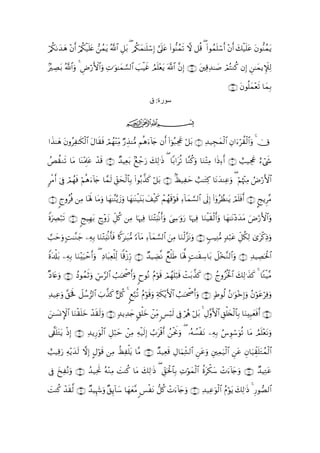 يَمُنُّونَ عَلَيْكَ أَنْ أَسْلَمُوا۟ ۖ قُل لَّا تَمُنُّوا۟ عَلَىَّ إِسْلَـٰمَكُم ۖ بَلِ ٱللَّهُ يَمُنُّ عَلَيْكُمْ أَنْ هَدَىٰكُمْ
لِلْإِيمَـٰنِ إِن كُنتُمْ صَـٰدِقِينَ ۝ إِنَّ ٱللَّهَ يَعْلَمُ غَيْبَ ٱلسَّمَـٰوَٰتِ وَٱلْأَرْضِ ۚ وَٱللَّهُ بَصِيرٌۢ
بِمَا تَعْمَلُونَ ۝
بِسْمِ ٱللَّهِ ٱلرَّحْمَـٰنِ ٱلرَّحِيمِ
سورة: ق
قٓ ۚ وَٱلْقُرْءَانِ ٱلْمَجِيدِ ۝ بَلْ عَجِبُوٓا۟ أَن جَآءَهُم مُّنذِرٌ مِّنْهُمْ فَقَالَ ٱلْكَـٰفِرُونَ هَـٰذَا
شَىْءٌ عَجِيبٌ ۝ أَءِذَا مِتْنَا وَكُنَّا تُرَابًا ۖ ذَٰلِكَ رَجْعٌۢ بَعِيدٌ ۝ قَدْ عَلِمْنَا مَا تَنقُصُ
ٱلْأَرْضُ مِنْهُمْ ۖ وَعِندَنَا كِتَـٰبٌ حَفِيظٌۢ ۝ بَلْ كَذَّبُوا۟ بِٱلْحَقِّ لَمَّا جَآءَهُمْ فَهُمْ فِىٓ أَمْرٍ
مَّرِيجٍ ۝ أَفَلَمْ يَنظُرُوٓا۟ إِلَى ٱلسَّمَآءِ فَوْقَهُمْ كَيْفَ بَنَيْنَـٰهَا وَزَيَّنَّـٰهَا وَمَا لَهَا مِن فُرُوجٍ ۝
وَٱلْأَرْضَ مَدَدْنَـٰهَا وَأَلْقَيْنَا فِيهَا رَوَٰسِىَ وَأَنۢبَتْنَا فِيهَا مِن كُلِّ زَوْجٍۭ بَهِيجٍ ۝ تَبْصِرَةً
وَذِكْرَىٰ لِكُلِّ عَبْدٍ مُّنِيبٍ ۝ وَنَزَّلْنَا مِنَ ٱلسَّمَآءِ مَآءً مُّبَـٰرَكًا فَأَنۢبَتْنَا بِهِۦ جَنَّـٰتٍ وَحَبَّ
ٱلْحَصِيدِ ۝ وَٱلنَّخْلَ بَاسِقَـٰتٍ لَّهَا طَلْعٌ نَّضِيدٌ ۝ رِّزْقًا لِّلْعِبَادِ ۖ وَأَحْيَيْنَا بِهِۦ بَلْدَةً
مَّيْتًا ۚ كَذَٰلِكَ ٱلْخُرُوجُ ۝ كَذَّبَتْ قَبْلَهُمْ قَوْمُ نُوحٍ وَأَصْحَـٰبُ ٱلرَّسِّ وَثَمُودُ ۝ وَعَادٌ
وَفِرْعَوْنُ وَإِخْوَٰنُ لُوطٍ ۝ وَأَصْحَـٰبُ ٱلْأَيْكَةِ وَقَوْمُ تُبَّعٍ ۚ كُلٌّ كَذَّبَ ٱلرُّسُلَ فَحَقَّ وَعِيدِ
۝ أَفَعَيِينَا بِٱلْخَلْقِ ٱلْأَوَّلِ ۚ بَلْ هُمْ فِى لَبْسٍ مِّنْ خَلْقٍ جَدِيدٍ ۝ وَلَقَدْ خَلَقْنَا ٱلْإِنسَـٰنَ
وَنَعْلَمُ مَا تُوَسْوِسُ بِهِۦ نَفْسُهُۥ ۖ وَنَحْنُ أَقْرَبُ إِلَيْهِ مِنْ حَبْلِ ٱلْوَرِيدِ ۝ إِذْ يَتَلَقَّى
ٱلْمُتَلَقِّيَانِ عَنِ ٱلْيَمِينِ وَعَنِ ٱلشِّمَالِ قَعِيدٌ ۝ مَّا يَلْفِظُ مِن قَوْلٍ إِلَّا لَدَيْهِ رَقِيبٌ
عَتِيدٌ ۝ وَجَآءَتْ سَكْرَةُ ٱلْمَوْتِ بِٱلْحَقِّ ۖ ذَٰلِكَ مَا كُنتَ مِنْهُ تَحِيدُ ۝ وَنُفِخَ فِى
ٱلصُّورِ ۚ ذَٰلِكَ يَوْمُ ٱلْوَعِيدِ ۝ وَجَآءَتْ كُلُّ نَفْسٍ مَّعَهَا سَآئِقٌ وَشَهِيدٌ ۝ لَّقَدْ كُنتَ